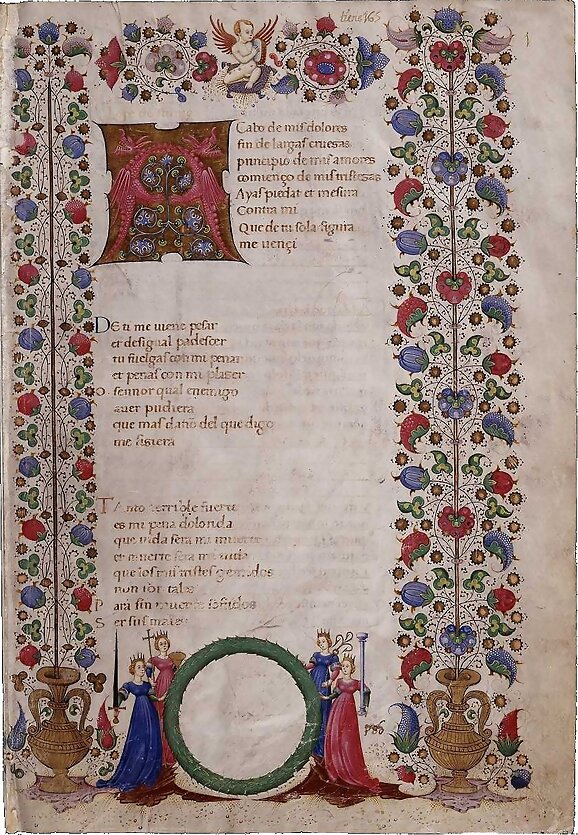 tiene 165
1
A Cabo de mis dolores
fin de largas cruesas
principio de mis amores
comienço de mis tristesas
Ayas piedat et mesura
Contra mi
Que de tu sola figura
me vençi
DE ti me viene pesar
et desigual padesçer
tu fuelgas con mi penar
et penas con mi plaser
o sennor qual enemigo
aver pudiera
que mas danno del que digo
me fisiera
TAnto terrible fuerte
es mi pena dolorida
que vida sera mi muerte
et muerte sera mi vida
que los mis tristes gemidos
non son tales
Para sin muerte sofridos
Ser sus males